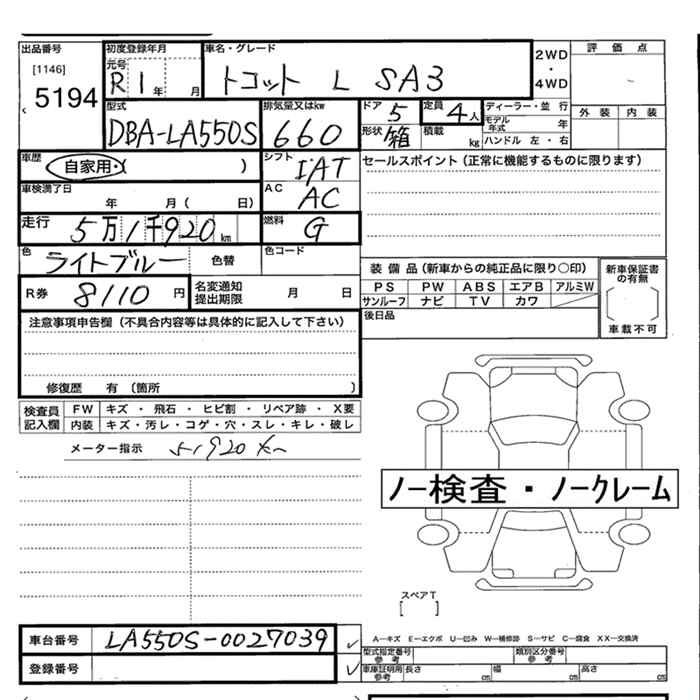 出品番号 初度登録年月 車名・グレード 2WD・4WD 評価点
[1146] 元号
5194 R1 年 月 トコット L SA3
型式 排気量又はkw ドア 定員 ディーラー・並行 外装 内装
DBA-LA550S 660 5 4人 モデル年式 年
形状 箱 積載 kg ハンドル 左・右
車歴 自家用・( ) シフト IAT セールスポイント(正常に機能するものに限ります)
車検満了日 年 月( 日) AC AC
走行 5万1千920km 燃料 G
色 ライトブルー 色替 色コード
装備品(新車からの純正品に限り○印) 新車保証書の有無
R券 8110円 名変通知提出期限 月 日 PS PW ABS エアB アルミW
サンルーフ ナビ TV カワ 車載不可
注意事項申告欄(不具合内容等は具体的に記入して下さい) 後日品
修復歴 有(箇所 )
検査員記入欄 FW キズ・飛石・ヒビ割・リペア跡・X要
内装 キズ・汚レ・コゲ・穴・スレ・キレ・破レ
メーター指示 51920km
ノー検査・ノークレーム
スペアT
[ ]
車台番号 LA550S-0027039 ✓ A―キズ E―エクボ U―凹み W―補修跡 S―サビ C―腐食 XX―交換済
登録番号 ✓ 型式指定番号 参考 類別区分番号 参考
車庫証明用 参考 長さ cm 幅 cm 高さ cm